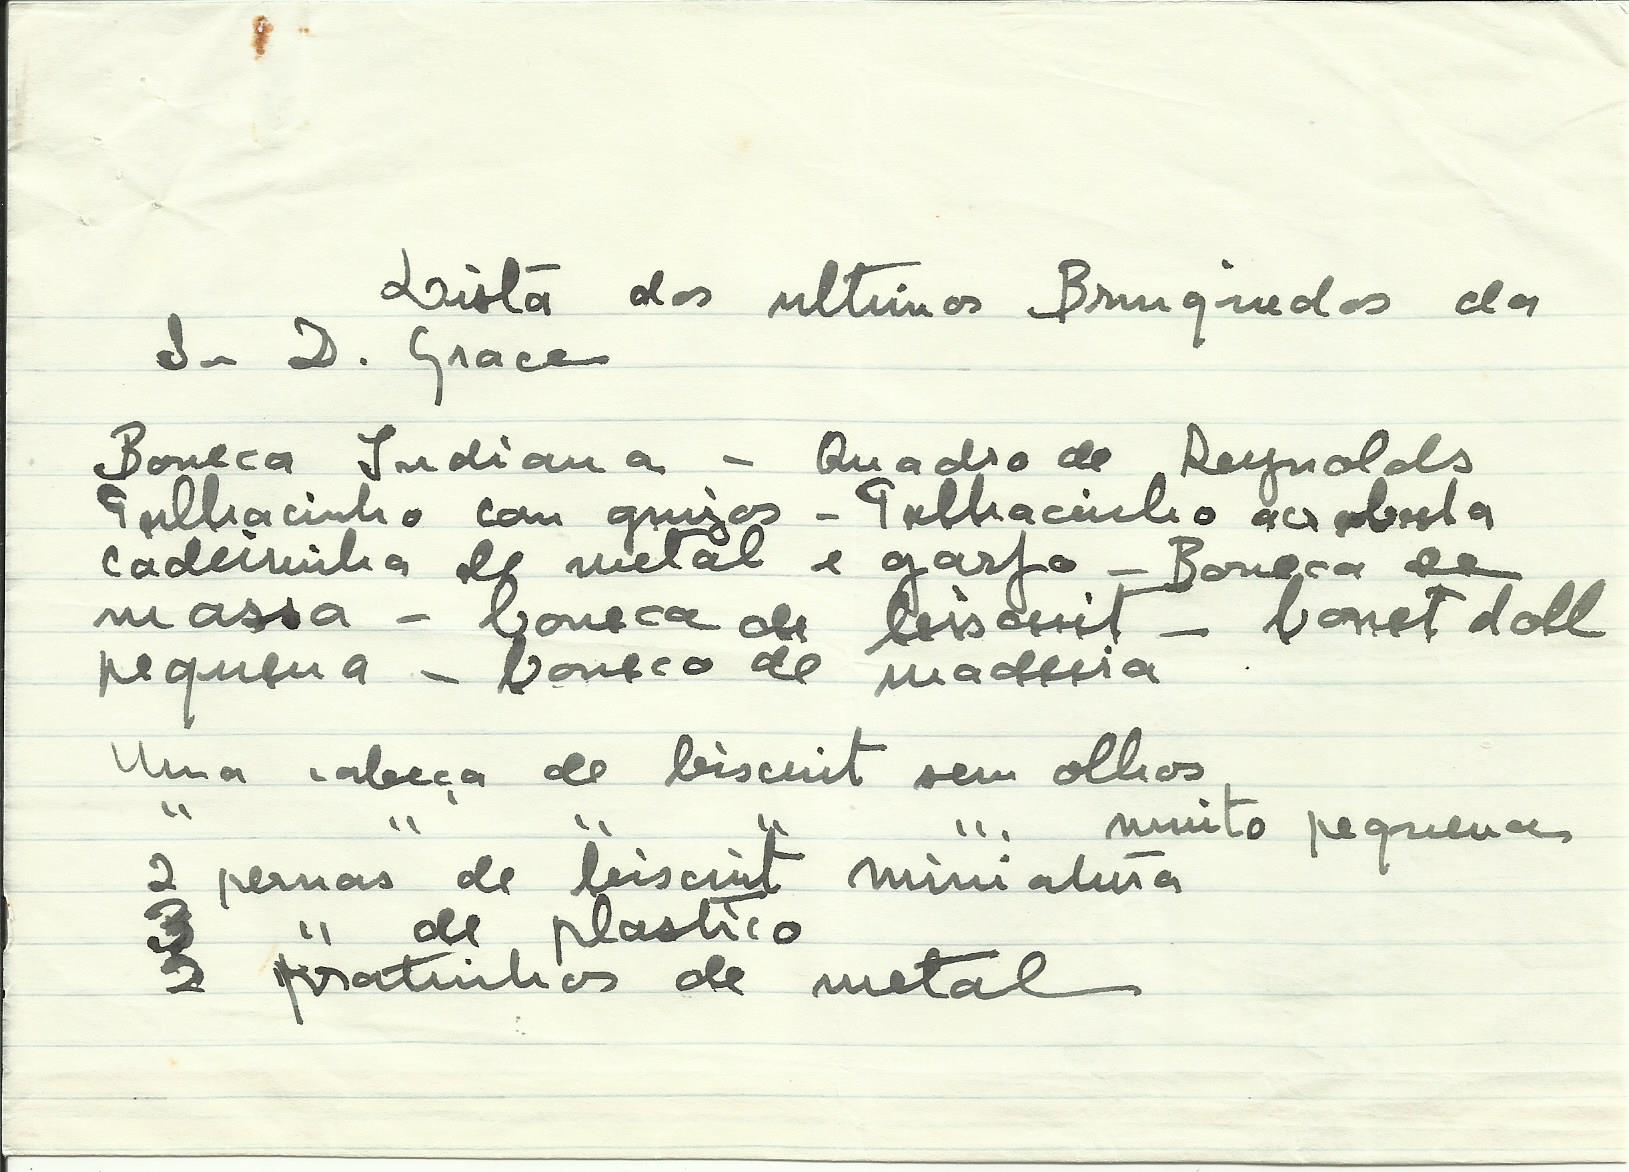 Lista dos ultimos Brinquedos da
Sra D. Grace
Boneca Indiana - Quadro de Reynolds
Palhacinho com guizos - Palhacinho acrobata
cadeirinha de metal e garfo - Boneca de
massa - boneca de biscuit - bonet doll
pequena - boneco de madeira
Uma cabeça de biscuit sem olhos
" " " " " muito pequena
2 pernas de biscuit miniatura
3 " de plastico
2 pratinhos de metal